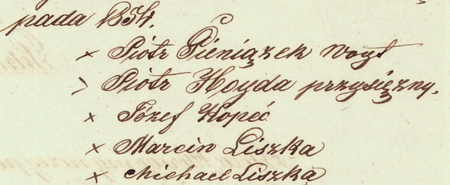 pada 1854.
× Piotr Pieniążek Woyt
> Piotr Hoyda przysiężny.
× Józef Kopeć
× Marcin Liszka
× Michael Liszka